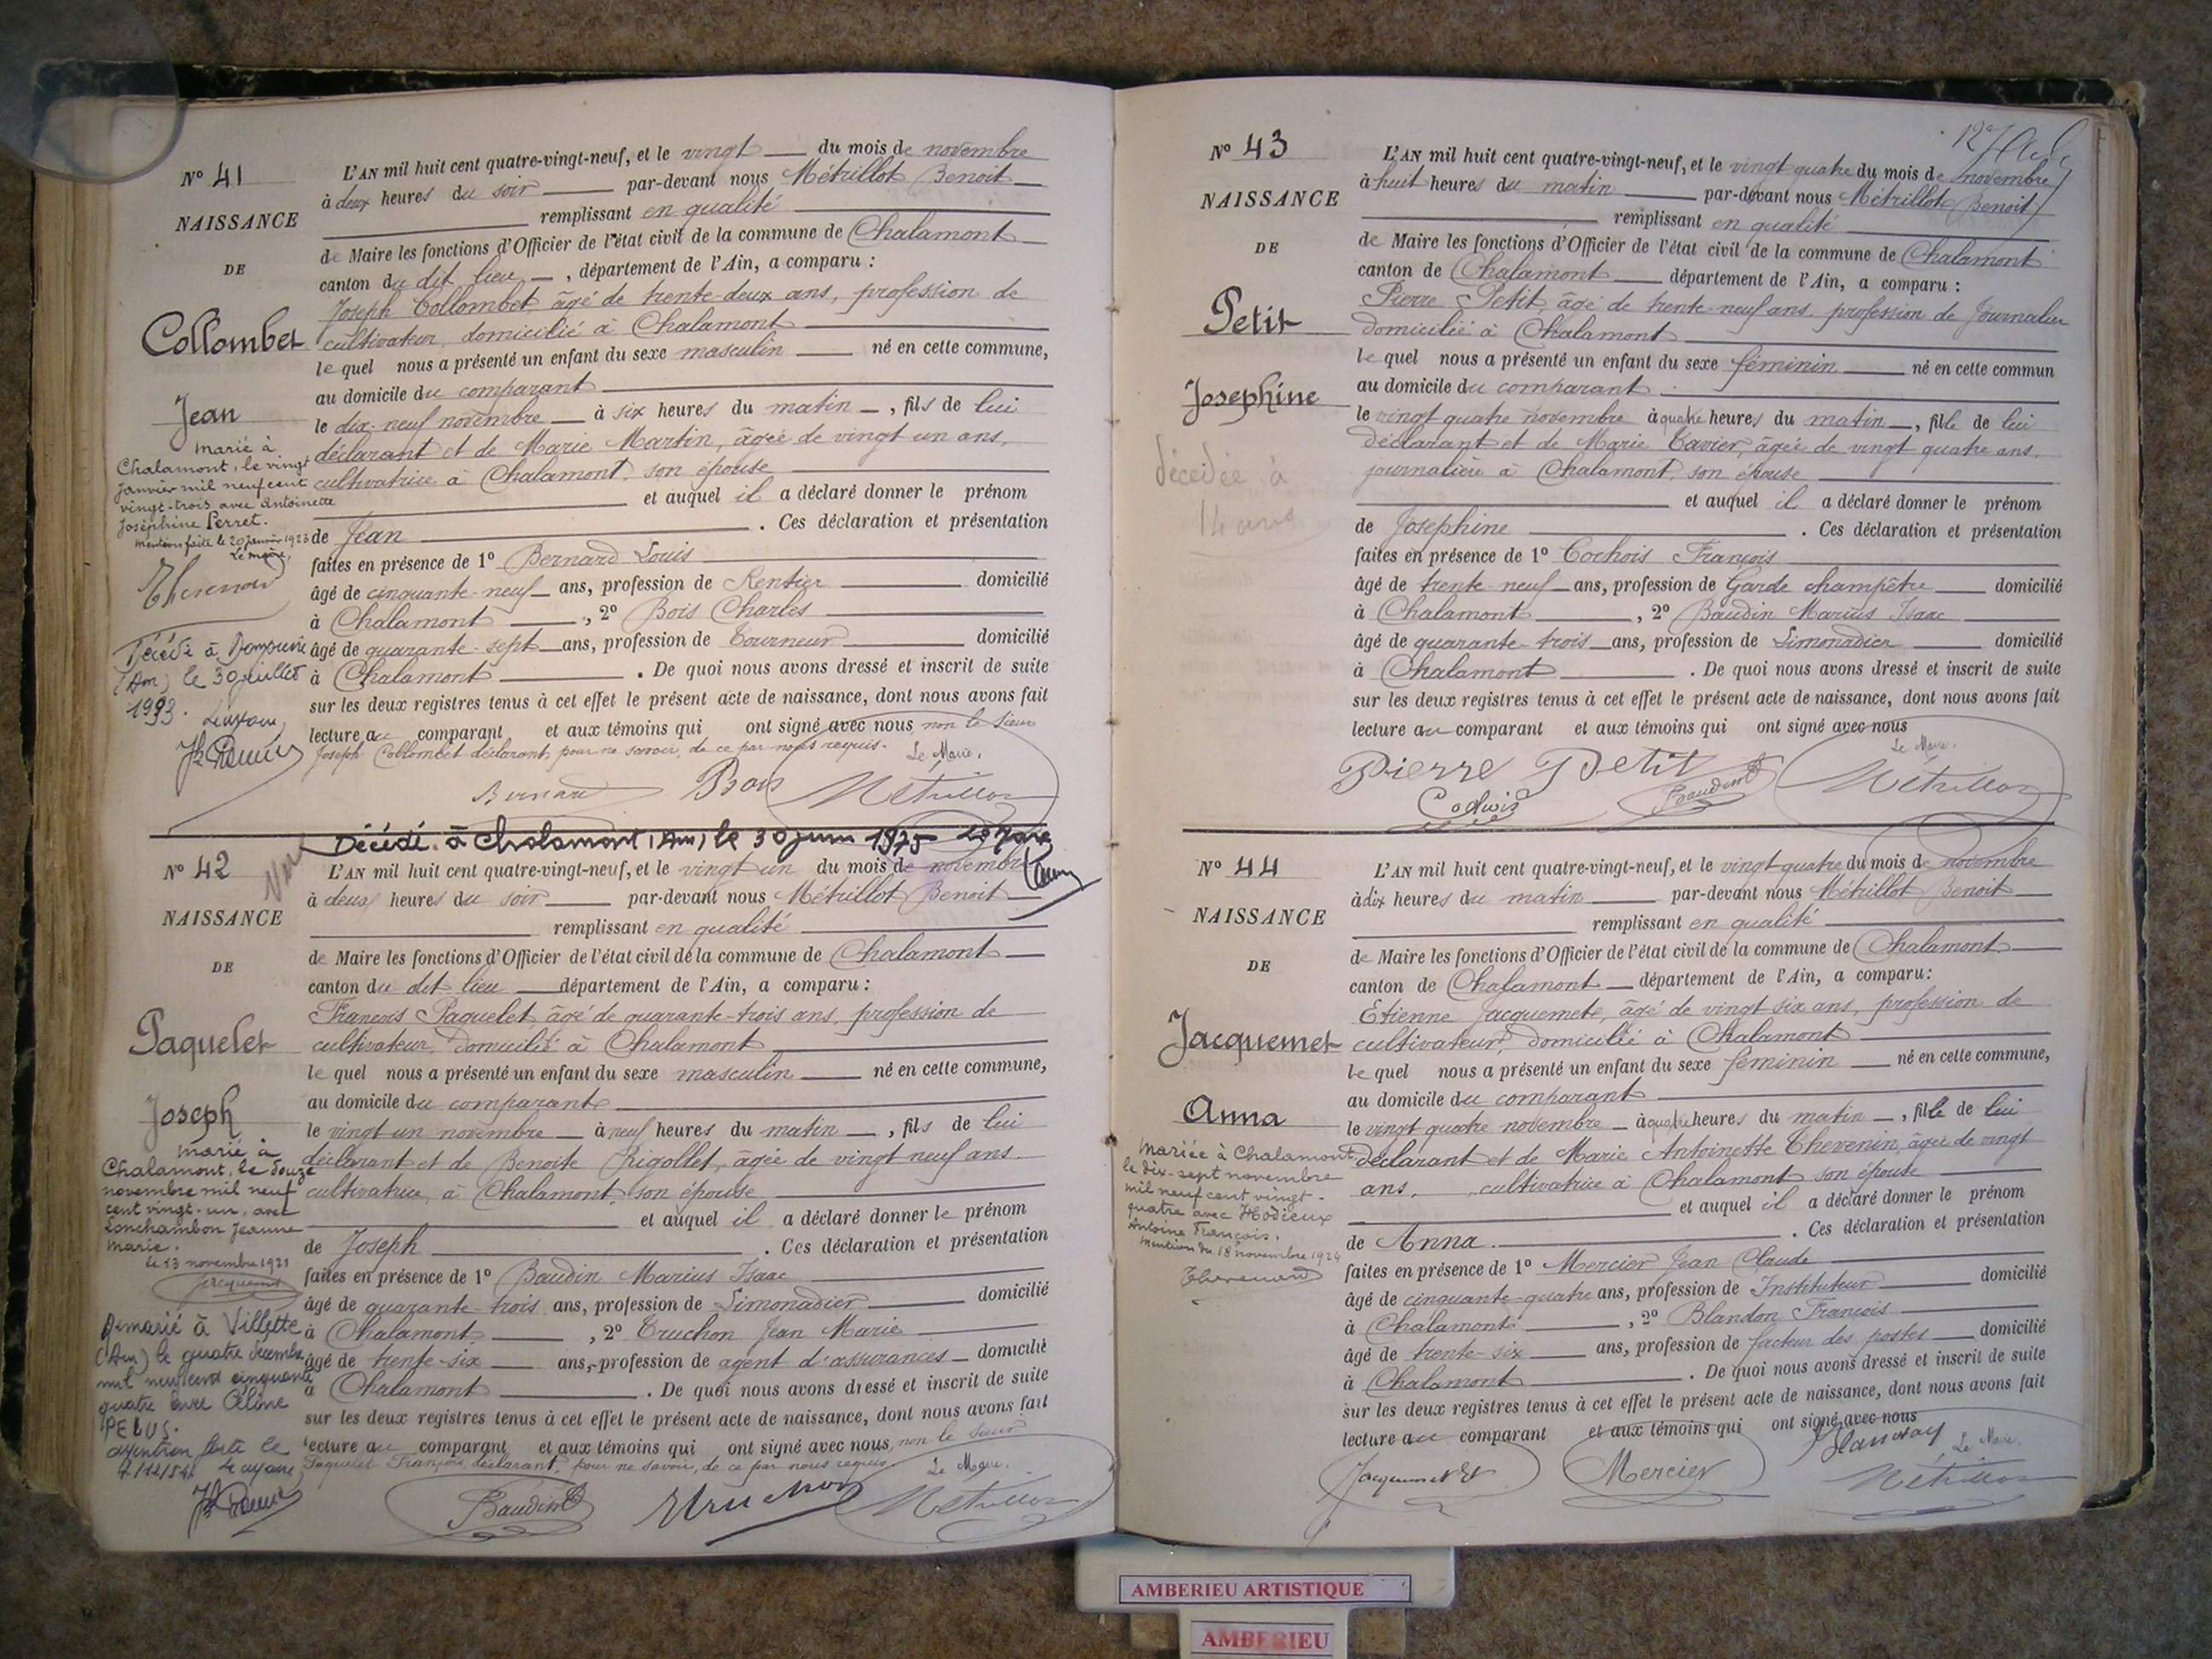 N° 41
NAISSANCE
DE
Collombet
Jean
marié à
Chalamont, le vingt
janvier mil neuf cent
vingt-trois avec Antoinette
Joséphine Perret.
Mention faite le 20 janvier 1923
Le maire,
Thevenard
Décédé à Dompierre
(Ain) le 30 juillet
L'AN mil huit cent quatre-vingt-neuf, et le vingt du mois de novembre
à deux heures du soir par-devant nous Métrillot Benoit
remplissant en qualité
de Maire les fonctions d'Officier de l'état civil de la commune de Chalamont
canton du dit lieu, département de l'Ain, a comparu :
Joseph Collombet, âgé de trente-deux ans, profession de
cultivateur, domicilié à Chalamont
lequel nous a présenté un enfant du sexe masculin né en cette commune,
au domicile du comparant
le dix-neuf novembre à six heures du matin, fils de lui
déclarant et de Marie Martin, âgée de vingt un ans,
cultivatrice à Chalamont, son épouse
et auquel il a déclaré donner le prénom
de Jean. Ces déclaration et présentation
faites en présence de 1° Bernard Louis
âgé de cinquante-neuf ans, profession de Rentier domicilié
à Chalamont, 2° Bois Charles
âgé de quarante-sept ans, profession de Tourneur domicilié
à Chalamont. De quoi nous avons dressé et inscrit de suite
sur les deux registres tenus à cet effet le présent acte de naissance, dont nous avons fait
lecture au comparant et aux témoins qui ont signé avec nous non le sieur
Joseph Collombet déclarant, pour ne savoir, de ce par nous requis. Le Maire.
Bernard Bois Métrillot
Décédé à Chalamont (Ain) le 30 juin 1975
N° 42
NAISSANCE
DE
Paquelet
Joseph
marié à
Chalamont, le douze
novembre mil neuf
cent vingt-un, avec
Lonchambon Jeanne
Marie.
le 13 novembre 1921
Remarié à Villette
(Ain) le quatre décembre
mil neuf cent cinquante
quatre avec Céline
PELUS.
Mention faite le
7/12/54 Le maire
L'AN mil huit cent quatre-vingt-neuf, et le vingt un du mois de novembre
à deux heures du soir par-devant nous Métrillot Benoit
remplissant en qualité
de Maire les fonctions d'Officier de l'état civil de la commune de Chalamont
canton du dit lieu département de l'Ain, a comparu :
François Paquelet âgé de quarante-trois ans, profession de
cultivateur, domicilié à Chalamont
lequel nous a présenté un enfant du sexe masculin né en cette commune,
au domicile du comparant
le vingt un novembre à neuf heures du matin, fils de lui
déclarant et de Benoite Rigollet, âgée de vingt neuf ans
cultivatrice, à Chalamont, son épouse
et auquel il a déclaré donner le prénom
de Joseph. Ces déclaration et présentation
faites en présence de 1° Baudin Marius Isaac
âgé de quarante-trois ans, profession de Limonadier domicilié
à Chalamont, 2° Truchon Jean Marie
âgé de trente-six ans, profession de agent d'assurances domicilié
à Chalamont. De quoi nous avons dressé et inscrit de suite
sur les deux registres tenus à cet effet le présent acte de naissance, dont nous avons fait
lecture au comparant et aux témoins qui ont signé avec nous, non le sieur
Paquelet François, déclarant, pour ne savoir, de ce par nous requis. Le Maire.
Baudin Truchon Métrillot
N° 43
NAISSANCE
DE
Petit
Josephine
décédée à
14 ans
L'AN mil huit cent quatre-vingt-neuf, et le vingt quatre du mois de novembre
à huit heures du matin par-devant nous Métrillot Benoit
remplissant en qualité
de Maire les fonctions d'Officier de l'état civil de la commune de Chalamont
canton de Chalamont département de l'Ain, a comparu :
Pierre Petit, âgé de trente-neuf ans, profession de Journalier
domicilié à Chalamont
lequel nous a présenté un enfant du sexe féminin né en cette commun
au domicile du comparant
le vingt quatre novembre à quatre heures du matin, fille de lui
déclarant et de Marie Tavier, âgée de vingt quatre ans,
journalière à Chalamont, son épouse
et auquel il a déclaré donner le prénom
de Josephine. Ces déclaration et présentation
faites en présence de 1° Cochois François
âgé de trente-neuf ans, profession de Garde champêtre domicilié
à Chalamont, 2° Baudin Marius Isaac
âgé de quarante-trois ans, profession de Limonadier domicilié
à Chalamont. De quoi nous avons dressé et inscrit de suite
sur les deux registres tenus à cet effet le présent acte de naissance, dont nous avons fait
lecture au comparant et aux témoins qui ont signé avec nous
Le Maire.
Pierre Petit Baudin Métrillot
N° 44
NAISSANCE
DE
Jacquemet
Anna
Mariée à Chalamont
le dix-sept novembre
mil neuf cent vingt-
quatre avec Hodieux
Antoine François.
Mention du 18 novembre 1924
Thevenard
L'AN mil huit cent quatre-vingt-neuf, et le vingt quatre du mois de novembre
à dix heures du matin par-devant nous Métrillot Benoit
remplissant en qualité
de Maire les fonctions d'Officier de l'état civil de la commune de Chalamont
canton de Chalamont département de l'Ain, a comparu:
Etienne Jacquemet, âgé de vingt six ans, profession de
cultivateur, domicilié à Chalamont
lequel nous a présenté un enfant du sexe féminin né en cette commune,
au domicile du comparant
le vingt quatre novembre à quatre heures du matin, fille de lui
déclarant et de Marie Antoinette Thevenin, âgée de vingt
ans, cultivatrice à Chalamont son épouse
et auquel il a déclaré donner le prénom
de Anna. Ces déclaration et présentation
faites en présence de 1° Mercier Jean Claude
âgé de cinquante-quatre ans, profession de Instituteur domicilié
à Chalamont, 2° Blandon François
âgé de trente-six ans, profession de facteur des postes domicilié
à Chalamont. De quoi nous avons dressé et inscrit de suite
sur les deux registres tenus à cet effet le présent acte de naissance, dont nous avons fait
lecture au comparant et aux témoins qui ont signé avec nous
Le Maire.
Jacquemet Et Mercier Métrillot
AMBERIEU ARTISTIQUE
AMBERIEU